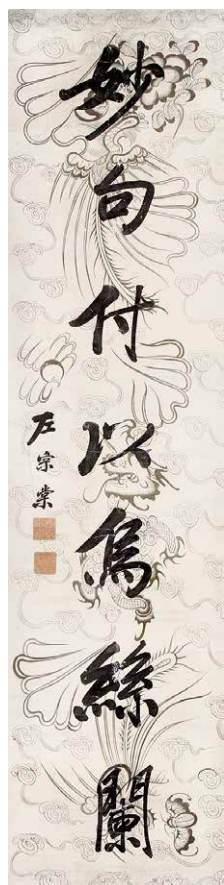 妙句付以烏絲闌
左宗棠